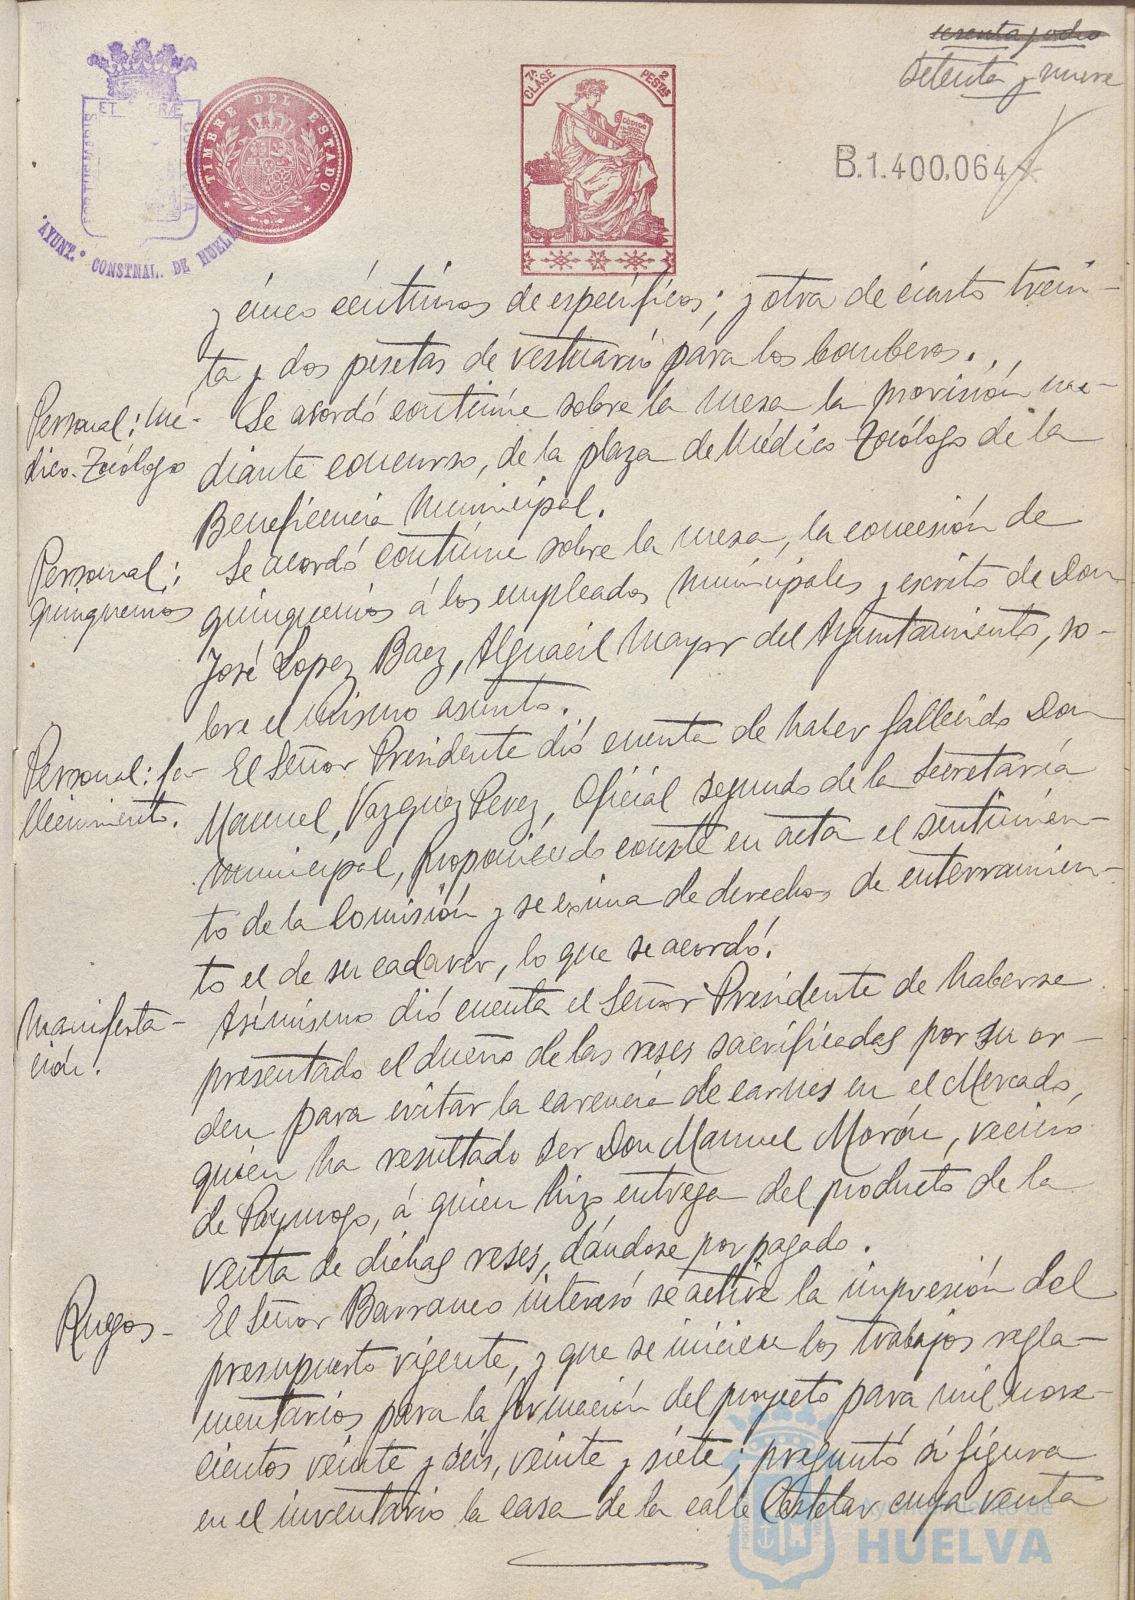 setenta y ocho
Setenta y nueve
7ª CLASE
2 PESTAS
CÓDIGO
TIMBRE DEL ESTADO
AYUNT.º CONSTNAL. DE HUELVA
B.1.400.064
y cinco céntimos de específicos; y otra de ciento trein-
ta y dos pesetas de vestuario para los bomberos.
Personal: Mé-
dico-Tocólogo
Se acordó continúe sobre la mesa la provisión me-
diante concurso, de la plaza de Médico Tocólogo de la
Beneficencia Municipal.
Personal:
quinquenios
Se acordó continúe sobre la mesa, la concesión de
quinquenios á los empleados municipales y escrito de Don
José Lopez Baez, Alguacil Mayor del Ayuntamiento, so-
bre el mismo asunto.
Personal: fa-
llecimiento.
El Señor Presidente dió cuenta de haber fallecido Don
Manuel Vazquez Perez, Oficial segundo de la Secretaría
municipal, proponiendo conste en acta el sentimien-
to de la Comisión y se exima de derechos de enterramien-
to el de su cadaver, lo que se acordó.
Manifesta-
ción.
Asimismo dió cuenta el Señor Presidente de haberse
presentado el dueño de las reses sacrificadas por su or-
den para evitar la carencia de carnes en el Mercado,
quien ha resultado ser Don Manuel Morón, vecino
de Paymogo, á quien hizo entrega del producto de la
venta de dichas reses, dándose por pagado.
Ruegos-
El Señor Barranco interesó se active la impresión del
presupuesto vigente, y que se inicien los trabajos regla-
mentarios para la formación del proyecto para mil nove-
cientos veinte y seis, veinte y siete; preguntó si figura
en el inventario la casa de la calle Castelar cuya venta
Ayuntamiento de
HUELVA